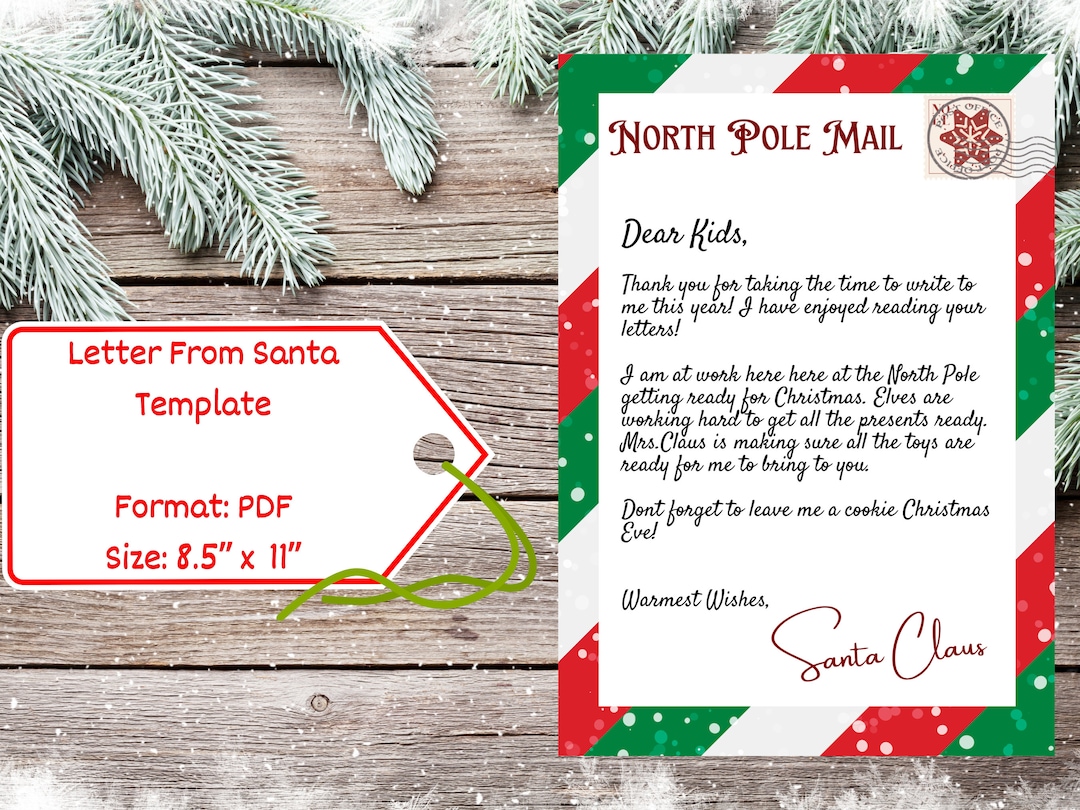 Letter From Santa
Template
Format: PDF
Size: 8.5” x 11”
North Pole Mail
POST OFFICE
Dear Kids,
Thank you for taking the time to write to
me this year! I have enjoyed reading your
letters!
I am at work here here at the North Pole
getting ready for Christmas. Elves are
working hard to get all the presents ready.
Mrs.Claus is making sure all the toys are
ready for me to bring to you.
Dont forget to leave me a cookie Christmas
Eve!
Warmest Wishes,
Santa Claus